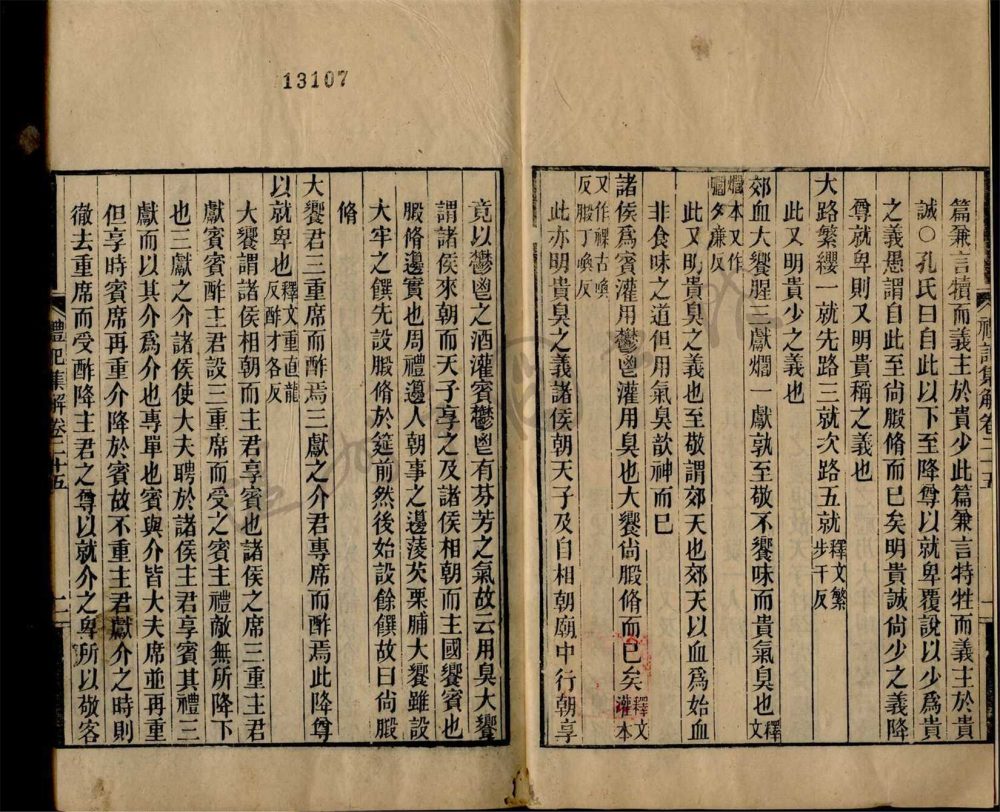 篇兼言犢而義主於貴少此篇兼言特牲而義主於貴
誠○孔氏曰自此以下至降尊以就卑覆說以少爲貴
之義愚謂自此至尚腶脩而已矣明貴誠尚少之義降
尊就卑則又明貴稱之義也
大路繁纓一就先路三就次路五就釋文繁步干反
此又明貴少之義也
郊血大饗腥三獻爓一獻孰至敬不饗味而貴氣臭也釋文
爓本又作爓夕廉反
此又明貴臭之義也至敬謂郊天也郊天以血爲始血
非食味之道但用氣臭歆神而已
諸侯爲賓灌用鬱鬯灌用臭也大饗尚腶脩而已矣釋文灌本
又作祼古喚反腶丁喚反
此亦明貴臭之義諸侯朝天子及自相朝廟中行朝享
禮記集解卷二十五
竟以鬱鬯之酒灌賓鬱鬯有芬芳之氣故云用臭大饗
謂諸侯來朝而天子享之及諸侯相朝而主國饗賓也
腶脩籩實也周禮籩人朝事之籩蔆芡栗脯大饗雖設
大牢之饌先設腶脩於筵前然後始設餘饌故曰尚腶
脩
大饗君三重席而酢焉三獻之介君專席而酢焉此降尊
以就卑也釋文重直龍反酢才各反
大饗謂諸侯相朝而主君享賓也諸侯之席三重主君
獻賓賓酢主君設三重席而受之賓主禮敵無所降下
也三獻之介諸侯使大夫聘於諸侯主君享賓其禮三
獻而以其介爲介也專單也賓與介皆大夫席並再重
但享時賓席再重介降於賓故不重主君獻介之時則
徹去重席而受酢降主君之尊以就介之卑所以敬客
禮記集解卷二十五
二
13107